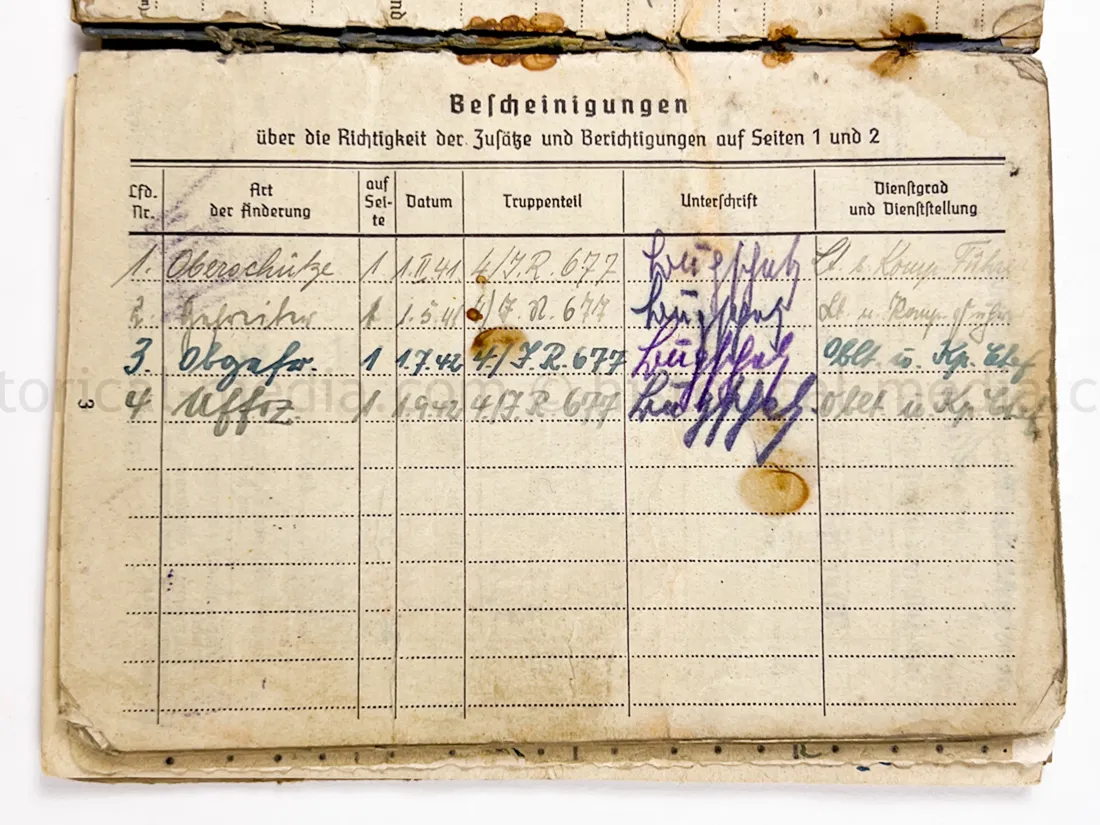 nd
Bescheinigungen
über die Richtigkeit der Zusätze und Berichtigungen auf Seiten 1 und 2
Lfd. Nr. Art der Änderung auf Sei-te Datum Truppenteil Unterschrift Dienstgrad und Dienststellung
1. Oberschütze 1 1.II.41 4/J.R. 677 Lt. u. Komp. Führer
2. Gefreiter 1 1.5.41 4/J.R. 677 Lt. u. Komp. Führer
3. Obgefr. 1 1.7.42 4./J.R. 677 Oblt. u. Kp. Chef
4 Uffz. 1 1.9.42 4/J.R. 677 Oblt. u. Kp. Chef
3